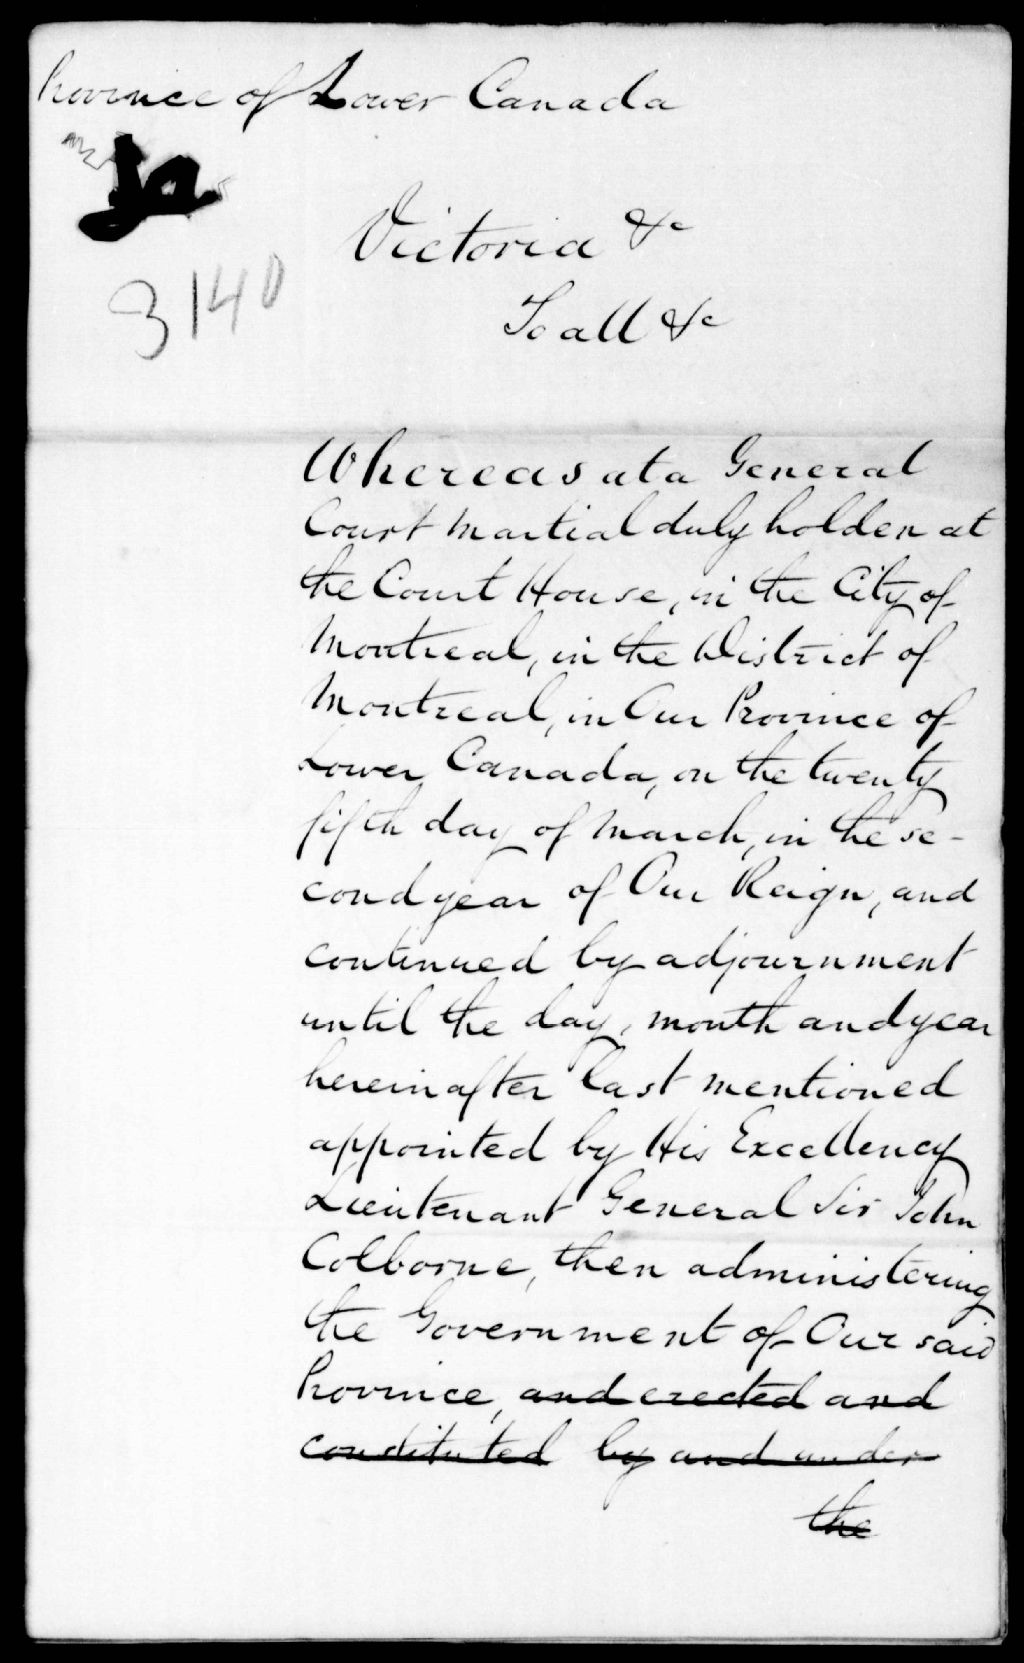 Province of Lower Canada
3140
Victoria &c
To all &c
Whereas at a General
Court Martial duly holden at
the Court House, in the City of
Montreal, in the District of
Montreal, in Our Province of
Lower Canada, on the twenty
fifth day of March, in the se-
cond year of Our Reign, and
continued by adjournment
until the day, month and year
hereinafter last mentioned
appointed by His Excellency
Lieutenant General Sir John
Colborne, then administering
the Government of Our said
Province, and erected and
constituted by and under
the